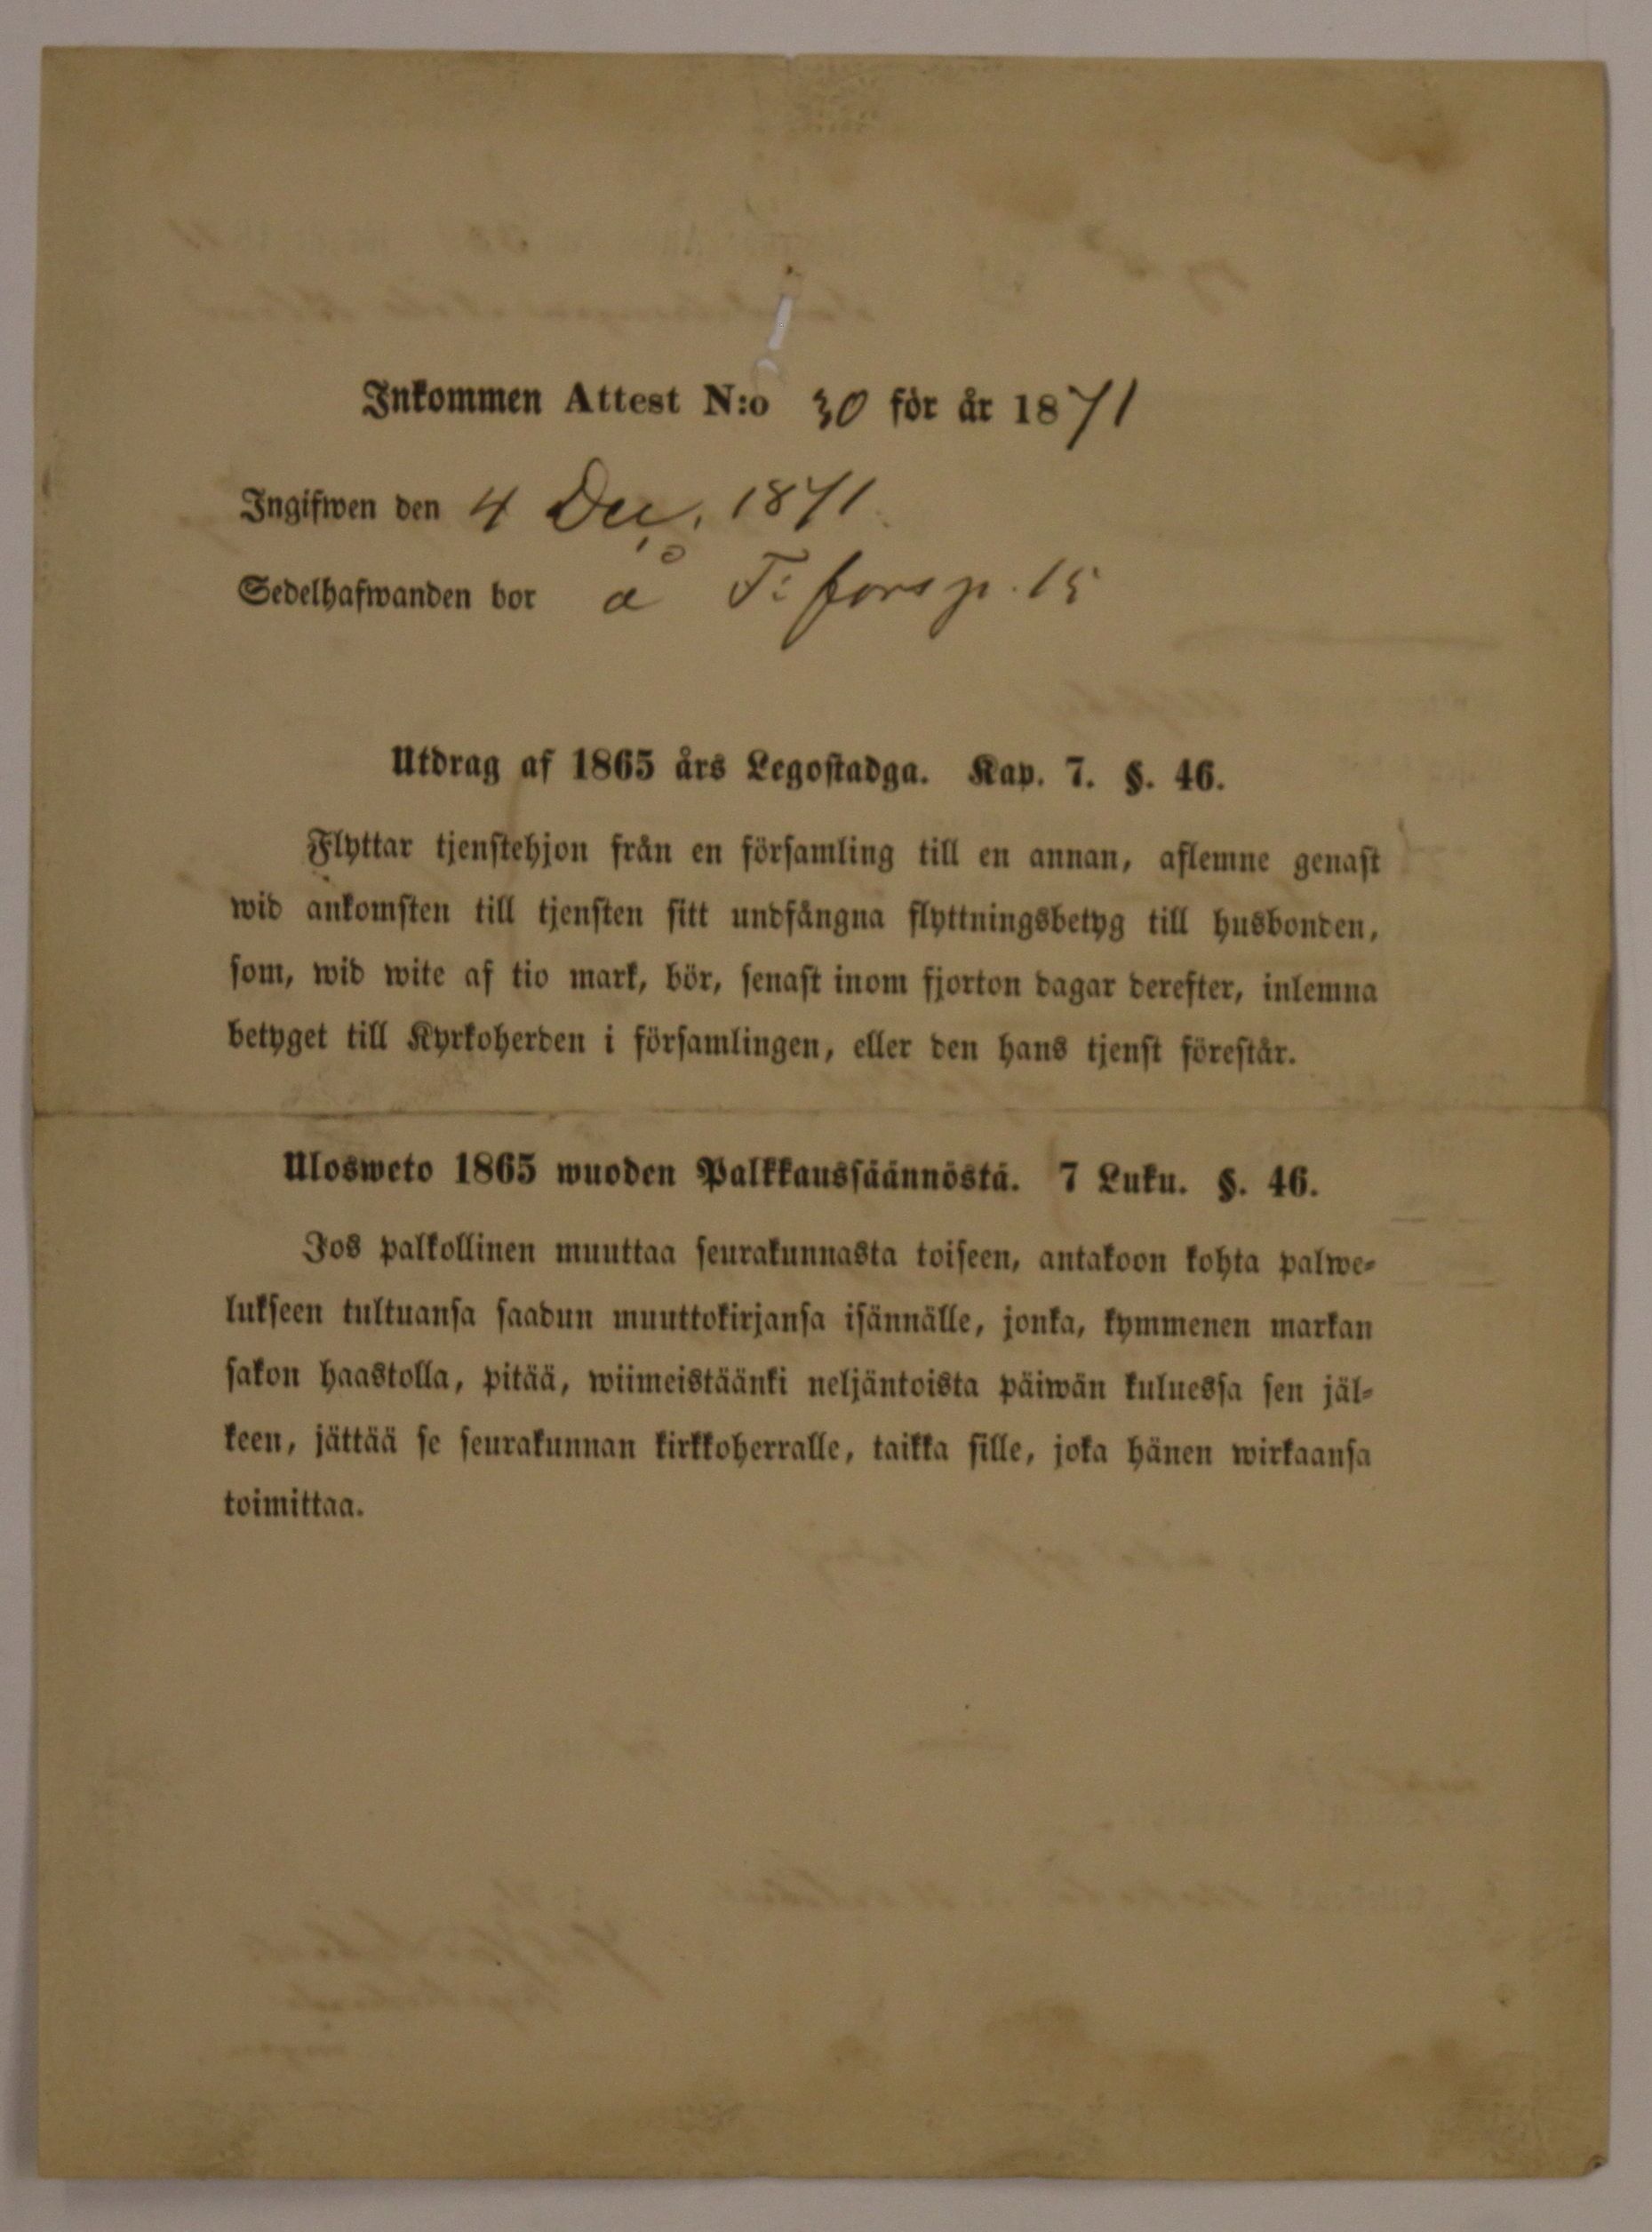 Inkommen Attest N:o 30 för år 1871
Ingifwen den 4 Dec. 1871.
Sedelhafwanden bor å T: fors p. 15
Utdrag af 1865 års Legostadga. Kap. 7. §. 46.
Flyttar tjenstehjon från en församling till en annan, aflemne genast
wid ankomsten till tjensten sitt undfångna flyttningsbetyg till husbonden,
som, wid wite af tio mark, bör, senast inom fjorton dagar derefter, inlemna
betyget till Kyrkoherden i församlingen, eller den hans tjenst förestår.
Ulosweto 1865 wuoden Palkkaussäännöstä. 7 Luku. §. 46.
Jos palkollinen muuttaa seurakunnasta toiseen, antakoon kohta palwe-
lukseen tultuansa saadun muuttokirjansa isännälle, jonka, kymmenen markan
sakon haastolla, pitää, wiimeistäänki neljäntoista päiwän kuluessa sen jäl-
keen, jättää se seurakunnan kirkkoherralle, taikka sille, joka hänen wirkaansa
toimittaa.